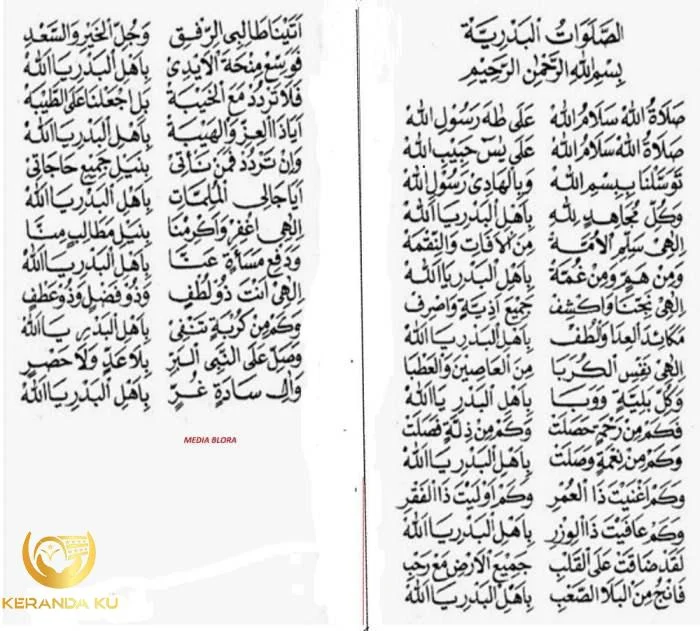 الصَّلَوَاتُ الْبَدْرِيَّةُ
بِسْمِ اللهِ الرَّحْمٰنِ الرَّحِيْمِ
صَلَاةُ اللهْ سَلَامُ اللهْ عَلَى طٰهَ رَسُوْلِ اللهْ
صَلَاةُ اللهْ سَلَامُ اللهْ عَلَى يٰسٓ حَبِيْبِ اللهْ
تَوَسَّلْنَا بِبِسْمِ اللهْ وَبِالْهَادِى رَسُوْلِ اللهْ
وَكُلِّ مُجَاهِدٍ لِلّٰهِ بِاَهْلِ الْبَدْرِ يَا اَللهْ
اِلٰهِى سَلِّمِ الْاُمَّةْ مِنَ الْاٰفَاتِ وَالنِّقْمَةْ
وَمِنْ هَمٍّ وَمِنْ غُمَّةْ بِاَهْلِ الْبَدْرِ يَا اَللهْ
اِلٰهِى نَجِّنَا وَاكْشِفْ جَمِيْعَ اَذِيَّةٍ وَاصْرِفْ
مَكَائِدَ الْعِدَا وَالْطُفْ بِاَهْلِ الْبَدْرِ يَا اَللهْ
اِلٰهِى نَفِّسِ الْكُرَبَا مِنَ الْعَاصِيْنَ وَالْعَطْبَا
وَكُلِّ بَلِيَّةٍ وَوَبَا بِاَهْلِ الْبَدْرِ يَا اَللهْ
فَكَمْ مِنْ رَحْمَةٍ حَصَلَتْ وَكَمْ مِنْ ذِلَّةٍ فَصَلَتْ
وَكَمْ مِنْ نِعْمَةٍ وَصَلَتْ بِاَهْلِ الْبَدْرِ يَا اَللهْ
وَكَمْ اَغْنَيْتَ ذَا الْعُمْرِ وَكَمْ اَوْلَيْتَ ذَا الْفَقْرِ
وَكَمْ عَافَيْتَ ذَا الْوِزْرِ بِاَهْلِ الْبَدْرِ يَا اَللهْ
لَقَدْ ضَاقَتْ عَلَى الْقَلْبِ جَمِيْعُ الْاَرْضِ مَعْ رَحْبِ
فَانْجُ مِنَ الْبَلَا الصَّعْبِ بِاَهْلِ الْبَدْرِ يَا اَللهْ
اَتَيْنَا طَالِبِى الرِّفْقِ وَجُلِّ الْخَيْرِ وَالسَّعْدِ
فَوَسِّعْ مِنْحَةَ الْاَيْدِىْ بِاَهْلِ الْبَدْرِ يَا اَللهْ
فَلَا تَرْدُدْ مَعَ الْخَيْبَةْ بَلِ اجْعَلْنَا عَلَى الطَّيْبَةْ
اَيَا ذَا الْعِزِّ وَالْهَيْبَةْ بِاَهْلِ الْبَدْرِ يَا اَللهْ
وَاِنْ تَرْدُدْ فَمَنْ نَأْتِىْ بِنَيْلِ جَمِيْعِ حَاجَاتِىْ
اَيَا جَالِى الْمُلِمَّاتِ بِاَهْلِ الْبَدْرِ يَا اَللهْ
اِلٰهِى اغْفِرْ وَاَكْرِمْنَا بِنَيْلِ مَطَالِبٍ مِنَّا
وَدَفْعِ مَسَاءَةٍ عَنَّا بِاَهْلِ الْبَدْرِ يَا اَللهْ
اِلٰهِى اَنْتَ ذُوْ لُطْفٍ وَذُوْ فَضْلٍ وَذُوْ عَطْفٍ
وَكَمْ مِنْ كُرْبَةٍ تَنْفِىْ بِاَهْلِ الْبَدْرِ يَا اَللهْ
وَصَلِّ عَلَى النَّبِى الْبَرِّ بِلَا عَدٍّ وَلَا حَصْرٍ
وَاٰلِ سَادَةٍ غُرٍّ بِاَهْلِ الْبَدْرِ يَا اَللهْ
MEDIA BLORA
KERANDA KU